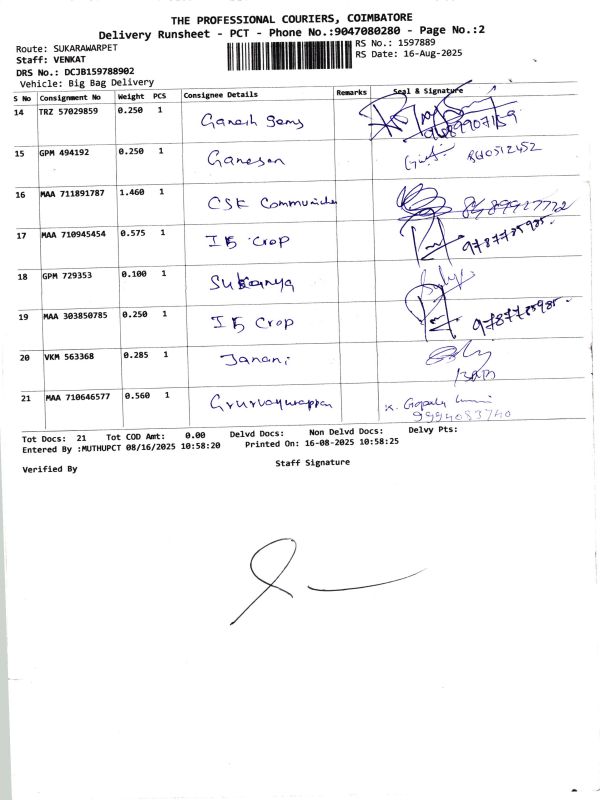 THE PROFESSIONAL COURIERS, COIMBATORE
Delivery Runsheet - PCT - Phone No.:9047080280 - Page No.:2
Route: SUKARAWARPET
RS No.: 1597889
Staff: VENKAT
RS Date: 16-Aug-2025
DRS No.: DCJB159788902
Vehicle: Big Bag Delivery
S No Consignment No Weight PCS Consignee Details Remarks Seal & Signature
14 TRZ 57029859 0.250 1 Ganesh Gems
15 GPM 494192 0.250 1 Ganesan
16 MAA 711891787 1.460 1 CSK
17 MAA 710945454 0.575 1 I F Crop 9787785985.
18 GPM 729353 0.100 1 Sukanya
19 MAA 303850785 0.250 1 I F Crop 9787785985.
20 VKM 563368 0.285 1 Janani
21 MAA 710646577 0.560 1 K. Gopala
9994083740
Tot Docs: 21 Tot COD Amt: 0.00 Delvd Docs: Non Delvd Docs: Delvy Pts:
Entered By :MUTHUPCT 08/16/2025 10:58:20 Printed On: 16-08-2025 10:58:25
Verified By
Staff Signature